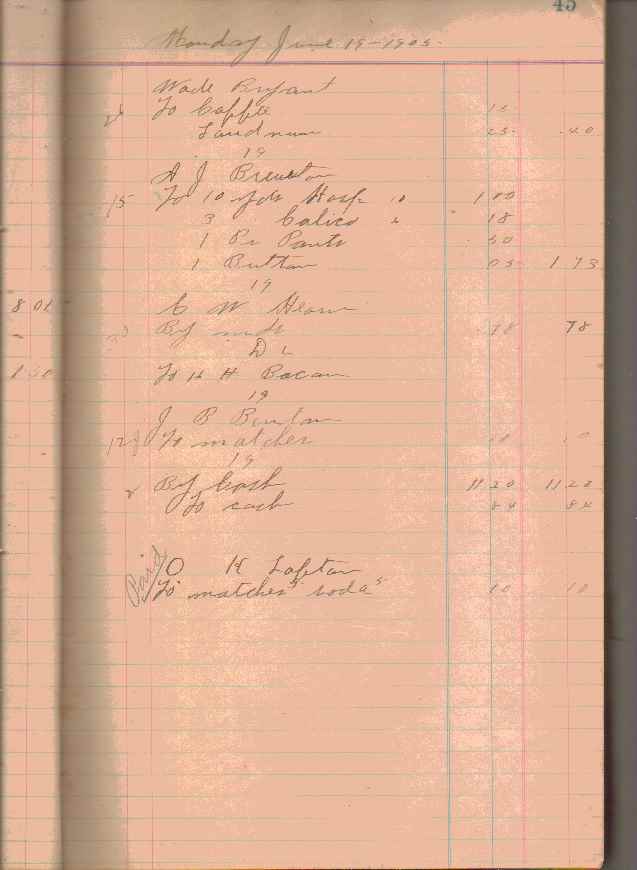 45
Monday June 19-1905.
Wade Bryant
To Coffee 15
Laudnum 25 .40
19
A J Brewton
15 To 10 yds 10 1 00
3 Calico 6 18
1 Pr Pants 50
1 Button 05 1 73
19
C W
By mds .78 78
Dr
To H H Bacon
19
J B Burton
To matches 10 10
19
By Cash 11 20 11 20
To cash 84 84
Paid
O H Lofton
To matches soda 10 10